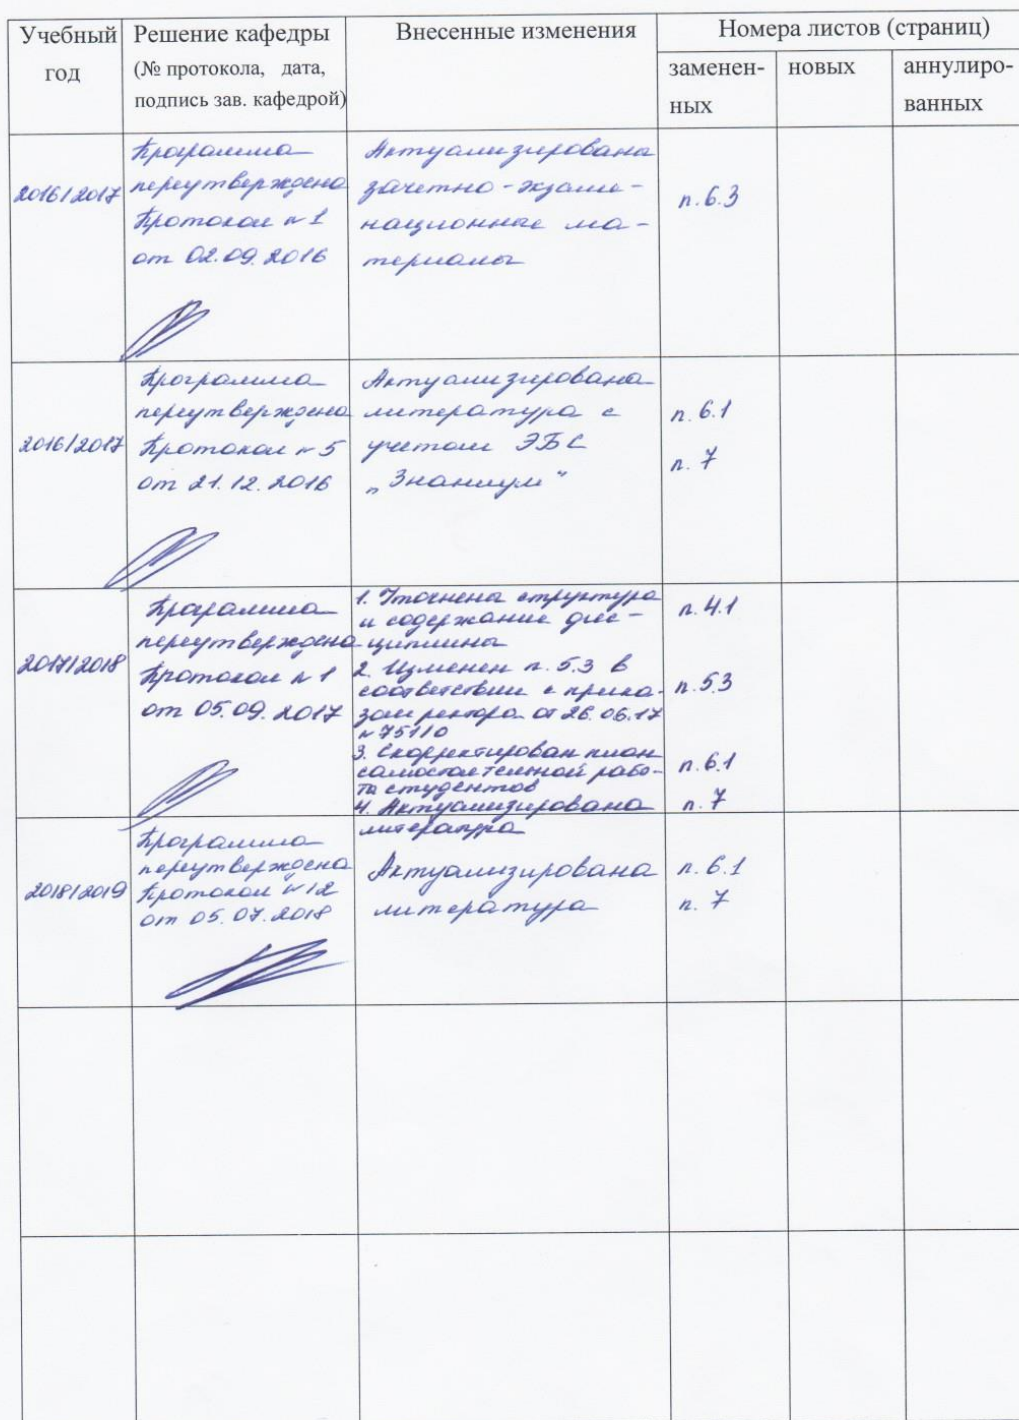 Учебный год
Решение кафедры
(№ протокола, дата,
подпись зав. кафедрой)
Внесенные изменения
Номера листов (страниц)
заменен-
ных
новых
аннулиро-
ванных
2016/2017
Программа
переутверждена
Протокол №1
от 02.09.2016
Актуализированы
зачетно-экзаме-
национные ма-
териалы
п.6.3
2016/2017
Программа
переутверждена
Протокол №5
от 21.12.2016
Актуализирована
литература с
учетом ЭБС
„Знаниум“
п.6.1
п.7
2017/2018
Программа
переутверждена
Протокол №1
от 05.09.2017
1. Уточнена структура
и содержание дис-
циплины
2. Изменен п.5.3 в
соответствии с прика-
зом ректора от 26.06.17
№7511О
3. Скорректирован план
самостоятельной рабо-
ты студентов
4. Актуализирована
литература
п.4.1
п.5.3
п.6.1
п.7
2018/2019
Программа
переутверждена
Протокол №12
от 05.07.2018
Актуализирована
литература
п.6.1
п.7